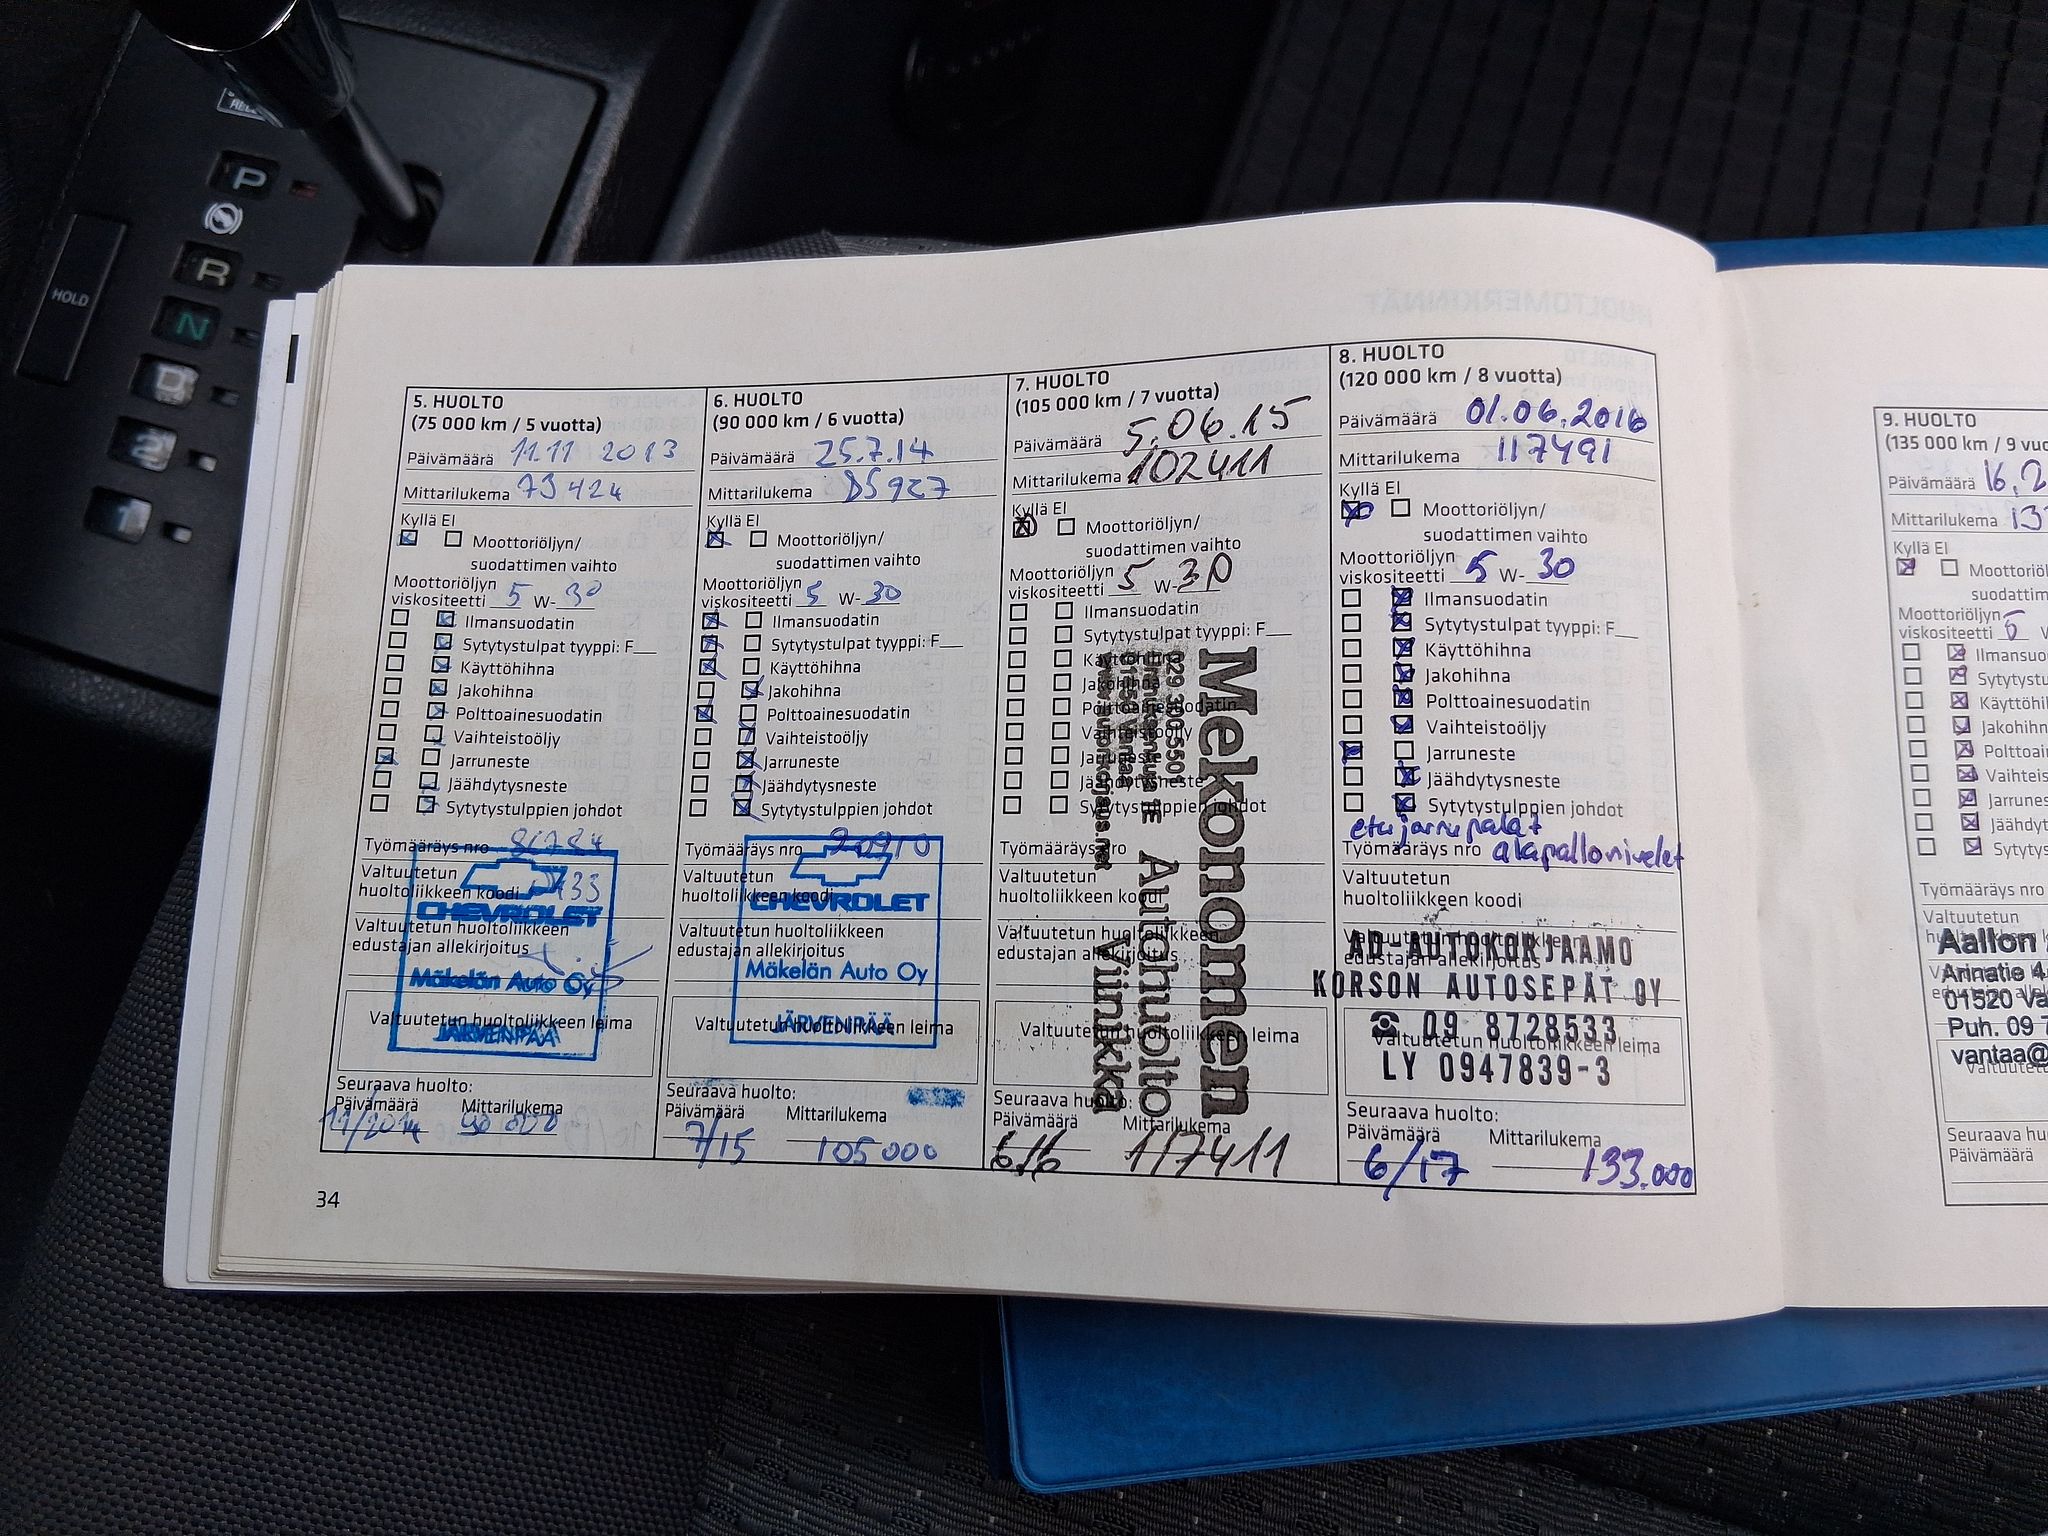 P
R
N
D
2
1
HOLD
5. HUOLTO
(75 000 km / 5 vuotta)
Päivämäärä 11.11 2013
Mittarilukema 73424
Kyllä EI
Moottoriöljyn/
suodattimen vaihto
Moottoriöljyn
viskositeetti 5 W-30
Ilmansuodatin
Sytytystulpat tyyppi: F__
Käyttöhihna
Jakohihna
Polttoainesuodatin
Vaihteistoöljy
Jarruneste
Jäähdytysneste
Sytytystulppien johdot
Työmääräys nro
Valtuutetun
huoltoliikkeen koodi
CHEVROLET
Valtuutetun huoltoliikkeen
edustajan allekirjoitus
Mäkelän Auto Oy
Valtuutetun huoltoliikkeen leima
JÄRVENPÄÄ
Seuraava huolto:
Päivämäärä Mittarilukema
11/2014 90 000
34
6. HUOLTO
(90 000 km / 6 vuotta)
Päivämäärä 25.7.14
Mittarilukema 85927
Kyllä EI
Moottoriöljyn/
suodattimen vaihto
Moottoriöljyn
viskositeetti 5 W-30
Ilmansuodatin
Sytytystulpat tyyppi: F__
Käyttöhihna
Jakohihna
Polttoainesuodatin
Vaihteistoöljy
Jarruneste
Jäähdytysneste
Sytytystulppien johdot
Työmääräys nro
Valtuutetun
huoltoliikkeen koodi
CHEVROLET
Valtuutetun huoltoliikkeen
edustajan allekirjoitus
Mäkelän Auto Oy
Valtuutetun huoltoliikkeen leima
JÄRVENPÄÄ
Seuraava huolto:
Päivämäärä Mittarilukema
7/15 105 000
7. HUOLTO
(105 000 km / 7 vuotta)
Päivämäärä 5.06.15
Mittarilukema 102411
Kyllä EI
Moottoriöljyn/
suodattimen vaihto
Moottoriöljyn
viskositeetti 5 W-30
Ilmansuodatin
Sytytystulpat tyyppi: F__
Käyttöhihna
Jakohihna
Polttoainesuodatin
Vaihteistoöljy
Jarruneste
Jäähdytysneste
Sytytystulppien johdot
Työmääräys nro
Valtuutetun
huoltoliikkeen koodi
Valtuutetun huoltoliikkeen
edustajan allekirjoitus
Valtuutetun huoltoliikkeen leima
Mekonomen
Autohuolto
Viinikka
029 3005501
Seuraava huolto:
Päivämäärä Mittarilukema
6/16 117411
8. HUOLTO
(120 000 km / 8 vuotta)
Päivämäärä 01.06.2016
Mittarilukema 117491
Kyllä EI
Moottoriöljyn/
suodattimen vaihto
Moottoriöljyn
viskositeetti 5 W-30
Ilmansuodatin
Sytytystulpat tyyppi: F__
Käyttöhihna
Jakohihna
Polttoainesuodatin
Vaihteistoöljy
Jarruneste
Jäähdytysneste
Sytytystulppien johdot
etujarrupalat
Työmääräys nro alapallonivelet
Valtuutetun
huoltoliikkeen koodi
AD-AUTOKORJAAMO
edustajan allekirjoitus
KORSON AUTOSEPÄT OY
☎ 09 8728533
Valtuutetun huoltoliikkeen leima
LY 0947839-3
Seuraava huolto:
Päivämäärä Mittarilukema
6/17 133.000
9. HUOLTO
(135 000 km / 9 vuo
Päivämäärä 16.2
Mittarilukema 13
Kyllä EI
Moottoriöl
suodattime
Moottoriöljyn
viskositeetti 5 W
Ilmansuo
Sytytystu
Käyttöhih
Jakohihn
Polttoain
Vaihteist
Jarrunes
Jäähdyt
Sytytys
Työmääräys nro
Valtuutetun
Aallon
Arinatie 4
01520 Va
Puh. 09 7
vantaa@
Seuraava hu
Päivämäärä